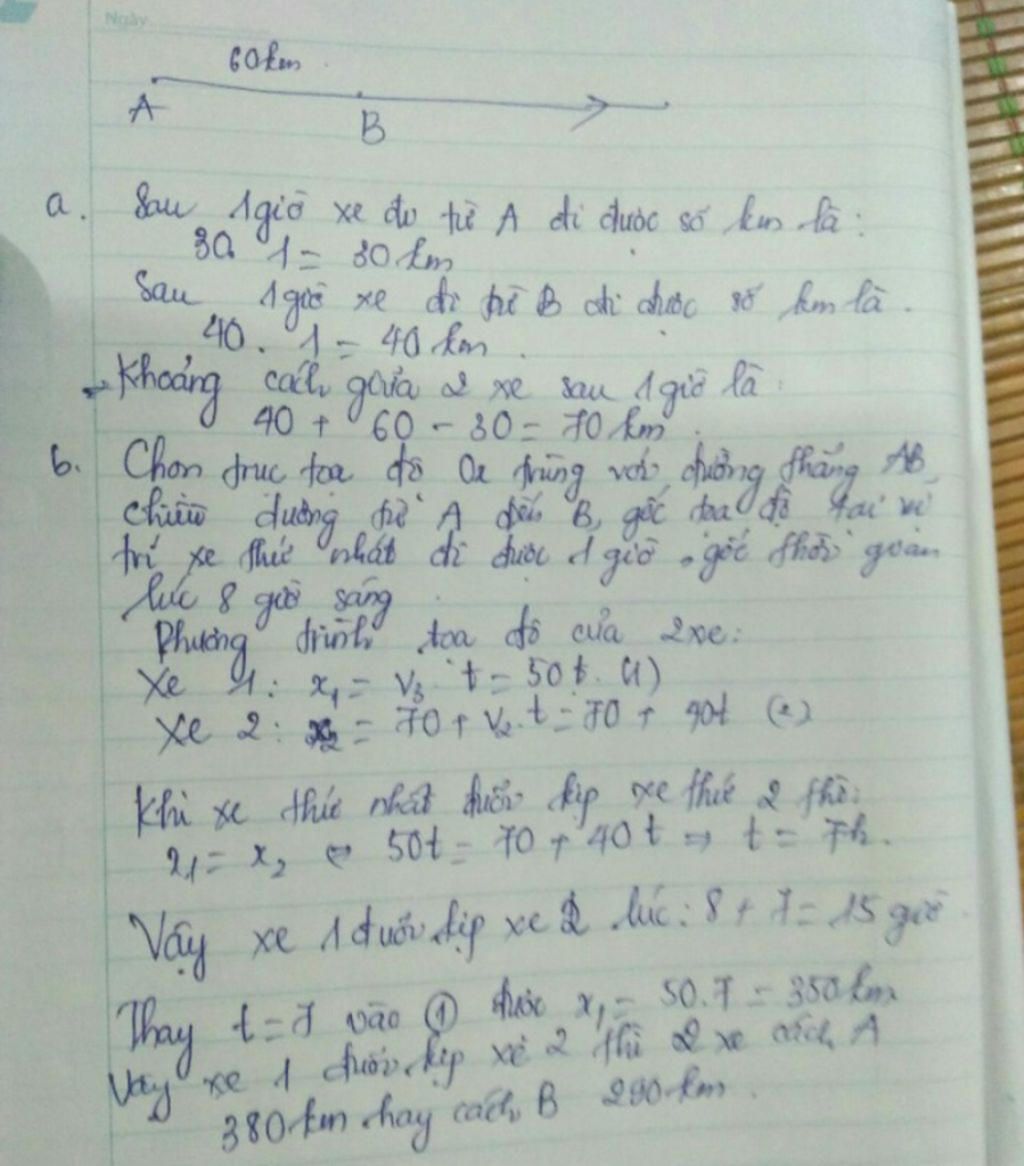 Ngày
60km
A
B
a. Sau 1 giờ xe đi từ A đi được số km là:
30. 1 = 30 km
Sau 1 giờ xe đi từ B đi được số km là.
40. 1 = 40 km.
Khoảng cách giữa 2 xe sau 1 giờ là:
40 + 60 - 30 = 70 km.
b. Chọn trục tọa độ Ox trùng với đường thẳng AB,
chiều dương từ A đến B, gốc tọa độ tại vị
trí xe thứ nhất đi được 1 giờ. gốc thời gian
lúc 8 giờ sáng.
Phương trình tọa độ của 2 xe:
Xe 1: x₁ = v₃. t = 50t. (1)
Xe 2: x₂ = 70 + v₂.t = 70 + 40t (2)
Khi xe thứ nhất đuổi kịp xe thứ 2 thì:
x₁ = x₂ ⇔ 50t = 70 + 40t ⇒ t = 7h.
Vậy xe 1 đuổi kịp xe 2 lúc: 8 + 7 = 15 giờ
Thay t = 7 vào ① được x₁ = 50.7 = 350 km
Vậy xe 1 đuổi kịp xe 2 thì 2 xe cách A
380 km hay cách B 290 km.